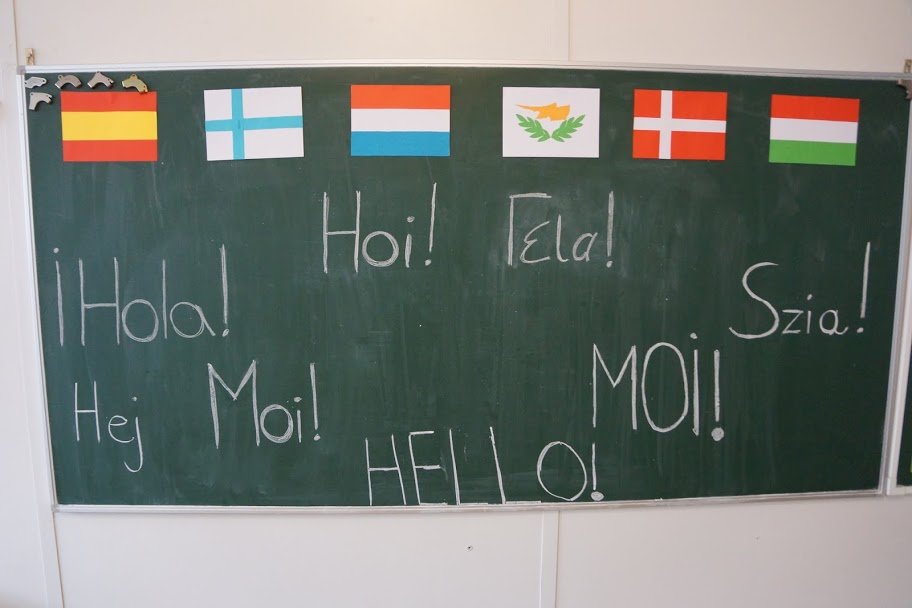 Hoi! Γεια!
¡Hola! Szia!
Hej Moi! MOi!
HELLO!